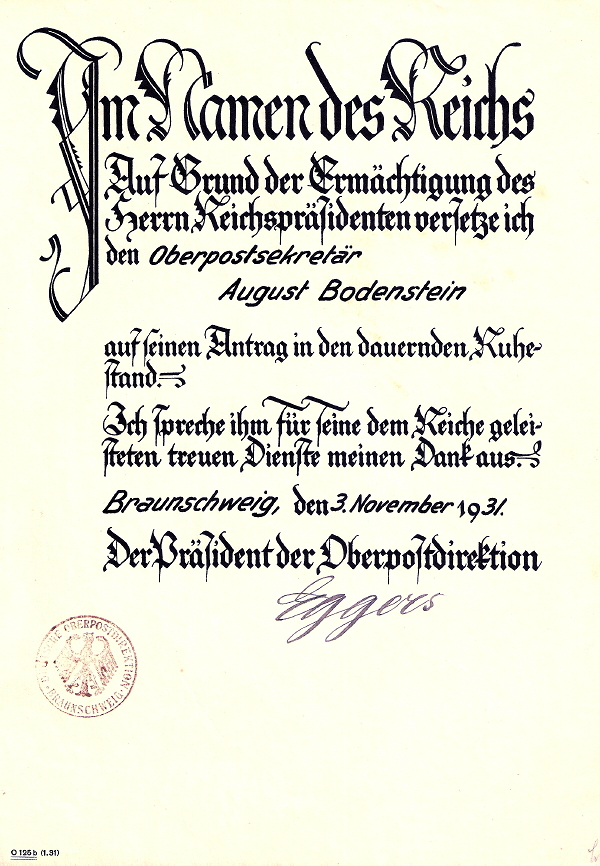 Im Namen des Reichs
Auf Grund der Ermächtigung des
Herrn Reichspräsidenten versetze ich
den Oberpostsekretär
August Bodenstein
auf seinen Antrag in den dauernden Ruhe-
stand.
Ich spreche ihm für seine dem Reiche gelei-
steten treuen Dienste meinen Dank aus.
Braunschweig, den 3. November 1931.
Der Präsident der Oberpostdirektion
Eggers
OBERPOSTDIREKTION
BRAUNSCHWEIG
O 125 b (1.31)